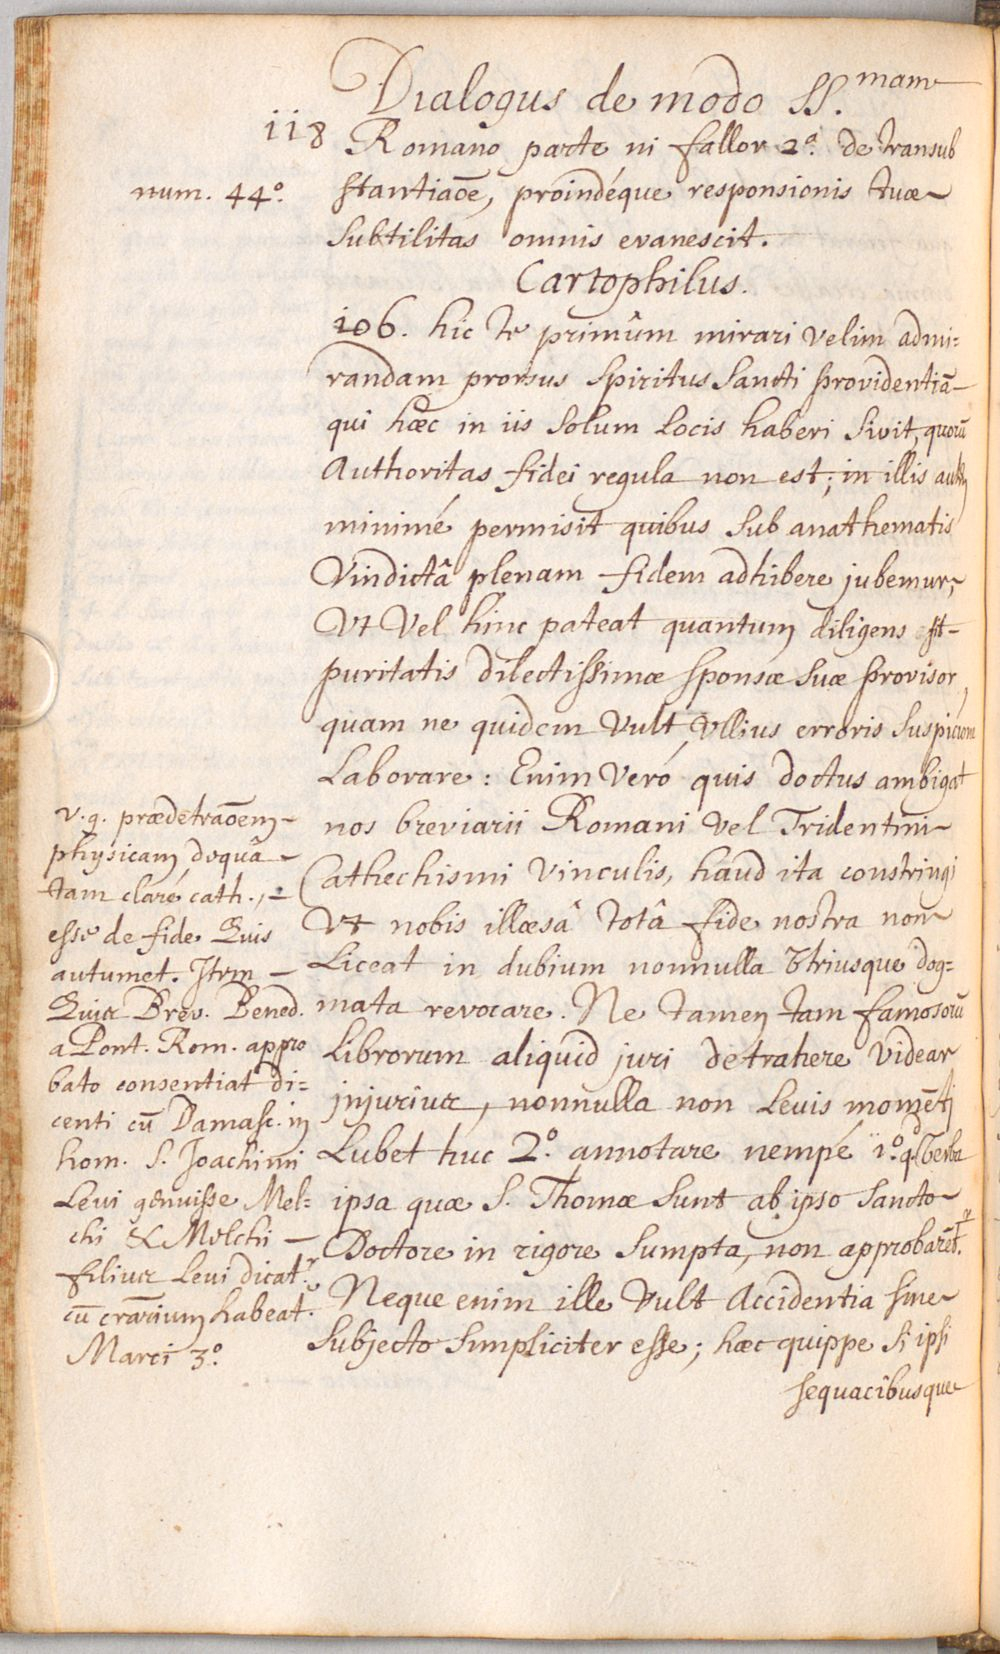 Dialogus de modo SS.mam
118
Romano parte ni fallor 2a. de transub
num. 44o.
stantiaõe, proindéque responsionis tuæ
subtilitas omnis evanescit.
Cartophilus.
106. hic te primûm mirari velim admi=
randam prorsus Spiritus Sancti providentiã
qui hæc in iis solum locis haberi sivit, quorũ
Authoritas fidei regula non est; in illis autem
minimé permisit quibus sub anathematis
Vindictâ plenam fidem adhibere jubemur,
Vt Vel hinc pateat quantum diligens sit
puritatis dilectissimæ sponsæ suæ provisor,
quam ne quidem Vult Vllius erroris suspiciõne
Laborare: Enim Veró quis doctus ambigat
nos breviarii Romani Vel Tridentini
Cathechismi Vinculis, haud ita constringi
Vt nobis illæsâ totâ fide nostra non
Liceat in dubium nonnulla Vtriusque dog=
mata revocare. Ne tamen tam famosorũ
Librorum aliquid juri detrahere Videar
injurius, nonnulla non Levis momẽti
Lubet huc 2o. annotare nempé 1o. qd Verba
ipsa quæ S. Thomæ sunt ab ipso sancto
Doctore in rigore sumpta, non approbarẽt.r
Neque enim ille Vult Accidentia sine
subjecto simpliciter esse; hæc quippe si ipsi
sequacibusque
v.g. prædetraõem
physicam dequâ
tam claré cath.,
esse de fide Quis
autumet. Itm
Quis Brev. Bened.
a Pont. Rom. appro
bato consentiat di=
centi cũ Damasc. in
hom. S. Joachimi
Levi genuisse Mel=
chi & Melchi
filius Levi dicat.r
cũ habeat.r
Marci 3o.